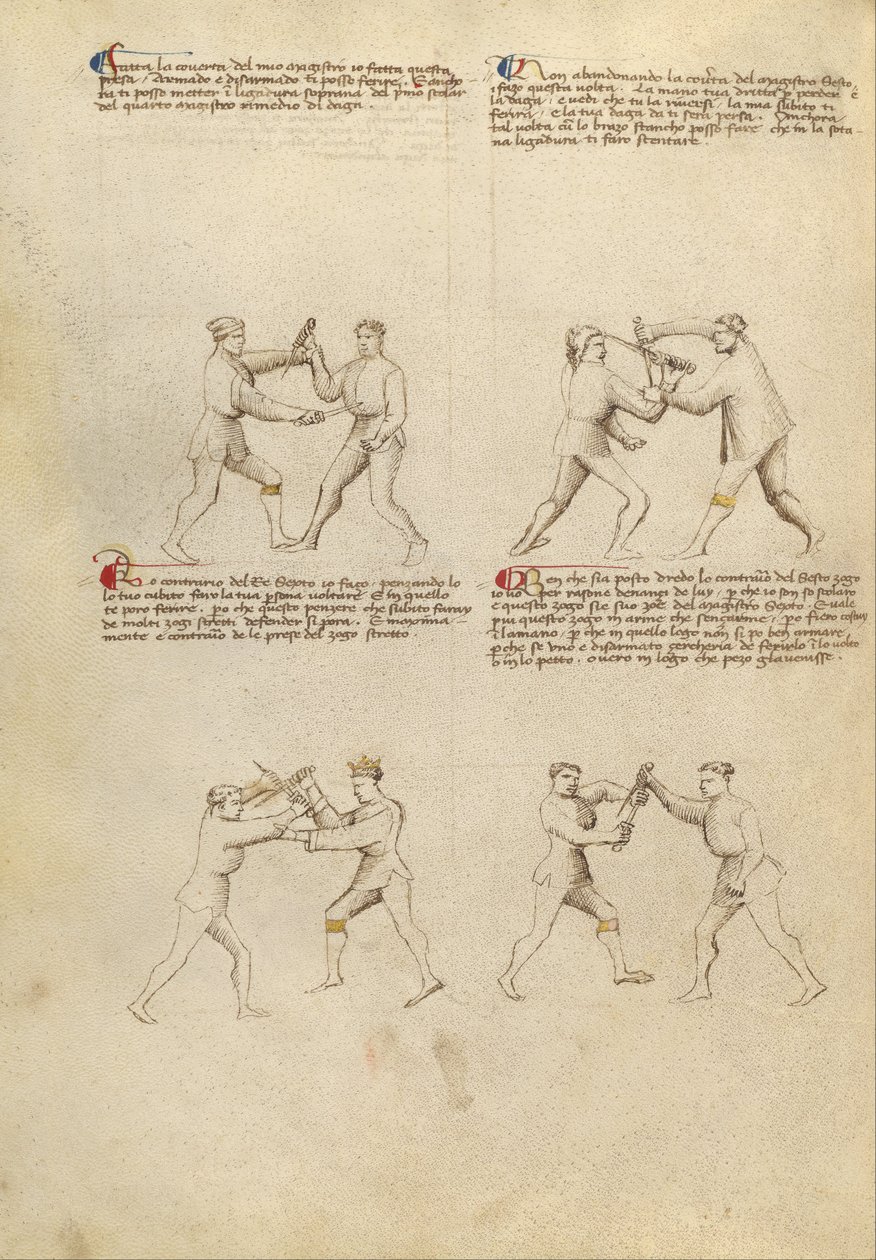 Fatta la coverta del mio magistro io fatta questa
presa, Armado e disarmado ti posso ferire. E ancho-
ra ti posso metter ī ligadura soprana del pmo scolar
del quarto magistro rimedio di daga.
Non abandonando la cov̄ta del magistro Sesto
i fazo questa volta. La mano tua dritta p perder è
la daga, e vedi che tu la riversi, la mia subito ti
ferira, E la tua daga da ti sera persa. Anchora
tal volta cū lo brazo stancho posso fare che in la sota-
na ligadura ti faro stentare.
Lo contrario del Re Sesto io faço, penzando lo
lo tuo cubito faro la tua psona voltare E in quello
te poro ferire. po che questo penzere che subito faray
de molti zogi stretti defender si pora. E maxima-
mente e contrāio de le prese del zogo stretto.
Ben che sia posto dredo lo contrāio del Sesto zogo
io vo per rasone denanzi de luy, p che io son so scolaro
e questo zogo sie suo zoe del magistro Sesto. E vale
piu questo zogo in arme che sença arme, po fiero costuy
ī la mano, p che in quello logo non si po ben armare,
p che se uno e disarmato çercheria de ferirlo ī lo volto
o in lo petto. overo in logo che pezo gl'avenisse.